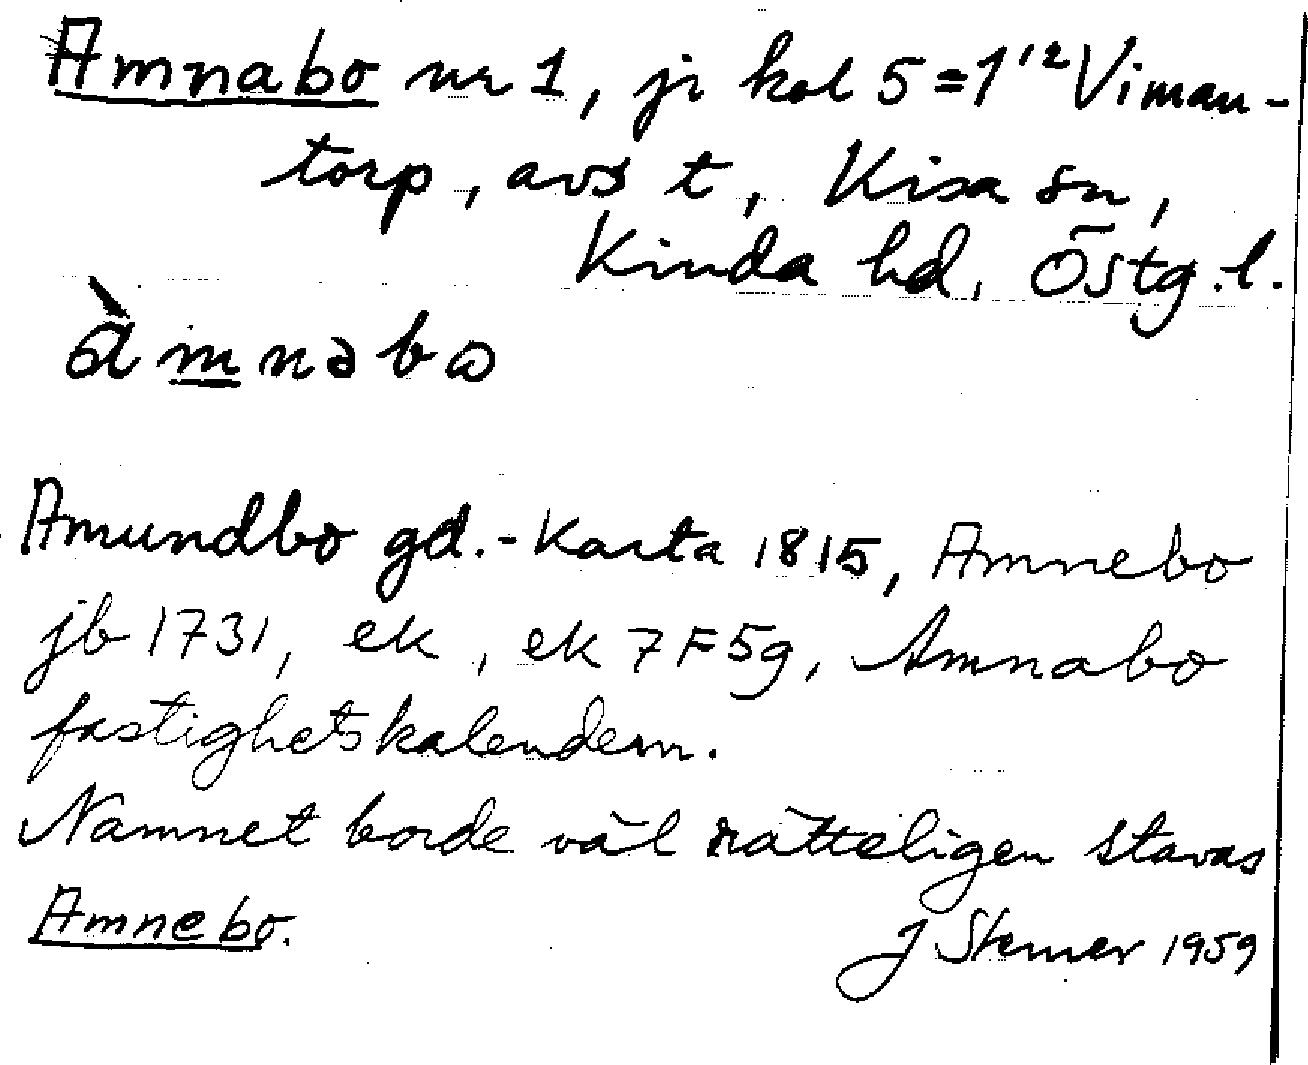 Amnabo nr 1, jr kol 5=1¹² Viman-
torp, avs t, Kisa sn,
Kinda hd, Östg.l.
àmnəbo
Amundbo gd.- Karta 1815, Amnebo
jb 1731, ek, ek 7F5g, Amnabo
fastighetskalendern.
Namnet borde väl rätteligen stavas
Amnebo.
J 1959